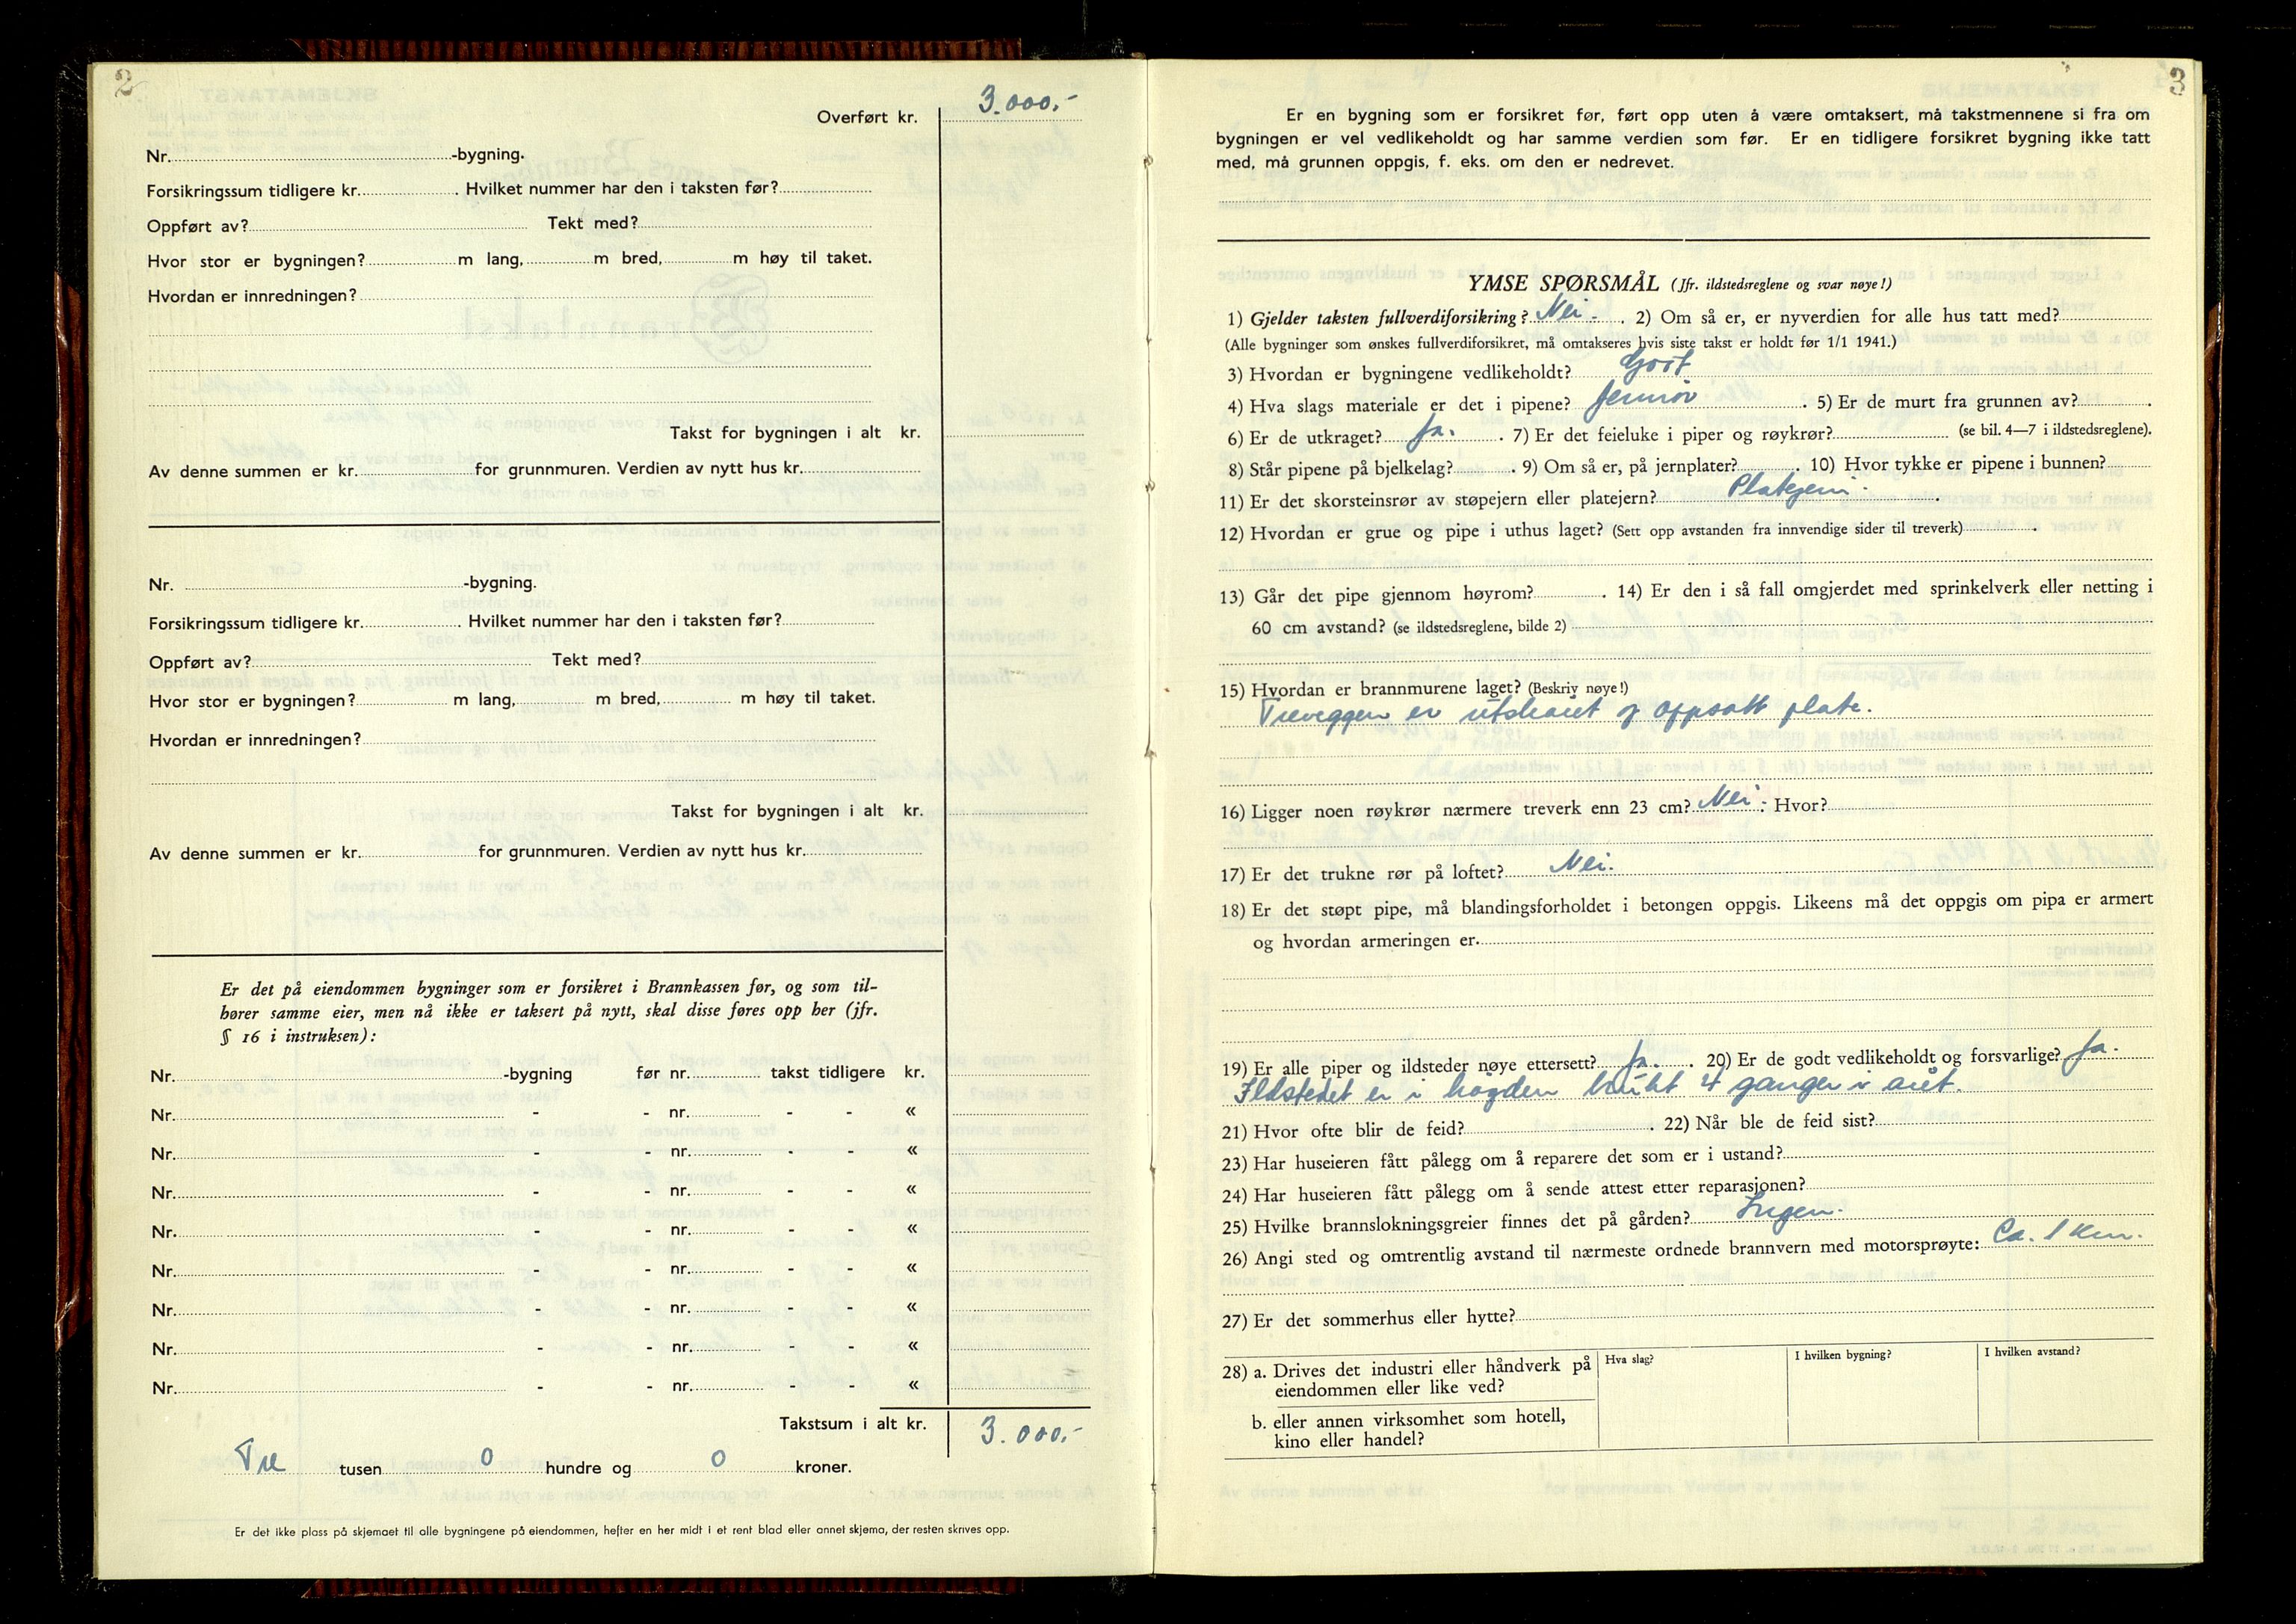 2
Overført kr. 3.000.-
Nr. -bygning.
Forsikringssum tidligere kr. . Hvilket nummer har den i taksten før?
Oppført av? Tekt med?
Hvor stor er bygningen? m lang, m bred, m høy til taket.
Hvordan er innredningen?
Takst for bygningen i alt kr.
Av denne summen er kr. for grunnmuren. Verdien av nytt hus kr.
Nr. -bygning.
Forsikringssum tidligere kr. . Hvilket nummer har den i taksten før?
Oppført av? Tekt med?
Hvor stor er bygningen? m lang, m bred, m høy til taket.
Hvordan er innredningen?
Takst for bygningen i alt kr.
Av denne summen er kr. for grunnmuren. Verdien av nytt hus kr.
Er det på eiendommen bygninger som er forsikret i Brannkassen før, og som til-
hører samme eier, men nå ikke er taksert på nytt, skal disse føres opp her (jfr.
§ 16 i instruksen):
Nr. -bygning før nr. takst tidligere kr.
Nr. - - nr. - - «
Nr. - - nr. - - «
Nr. - - nr. - - «
Nr. - - nr. - - «
Nr. - - nr. - - «
Nr. - - nr. - - «
Nr. - - nr. - - «
Nr. - - nr. - - «
Takstsum i alt kr. 3.000.-
Tre tusen 0 hundre og 0 kroner.
Er det ikke plass på skjemaet til alle bygningene på eiendommen, hefter en her midt i et rent blad eller annet skjema, der resten skrives opp.
3
Er en bygning som er forsikret før, ført opp uten å være omtaksert, må takstmennene si fra om
bygningen er vel vedlikeholdt og har samme verdien som før. Er en tidligere forsikret bygning ikke tatt
med, må grunnen oppgis, f. eks. om den er nedrevet.
YMSE SPØRSMÅL (Jfr. ildstedsreglene og svar nøye!)
1) Gjelder taksten fullverdiforsikring? Nei. . 2) Om så er, er nyverdien for alle hus tatt med?
(Alle bygninger som ønskes fullverdiforsikret, må omtakseres hvis siste takst er holdt før 1/1 1941.)
3) Hvordan er bygningene vedlikeholdt? Godt
4) Hva slags materiale er det i pipene? Jernrør . 5) Er de murt fra grunnen av? .
6) Er de utkraget? Ja. . 7) Er det feieluke i piper og røykrør? (se bil. 4—7 i ildstedsreglene).
8) Står pipene på bjelkelag? . 9) Om så er, på jernplater? . 10) Hvor tykke er pipene i bunnen?
11) Er det skorsteinsrør av støpejern eller platejern? Platejern. .
12) Hvordan er grue og pipe i uthus laget? (Sett opp avstanden fra innvendige sider til treverk) .
13) Går det pipe gjennom høyrom? . 14) Er den i så fall omgjerdet med sprinkelverk eller netting i
60 cm avstand? (se ildstedsreglene, bilde 2)
15) Hvordan er brannmurene laget? (Beskriv nøye!)
Treveggen er utskåret og oppsatt plate.
16) Ligger noen røykrør nærmere treverk enn 23 cm? Nei. Hvor?
17) Er det trukne rør på loftet? Nei.
18) Er det støpt pipe, må blandingsforholdet i betongen oppgis. Likeens må det oppgis om pipa er armert
og hvordan armeringen er.
19) Er alle piper og ildsteder nøye ettersett? Ja. . 20) Er de godt vedlikeholdt og forsvarlige? Ja.
Ildstedet er i høgden brukt 4 ganger i året.
21) Hvor ofte blir de feid? . 22) Når ble de feid sist?
23) Har huseieren fått pålegg om å reparere det som er i ustand?
24) Har huseieren fått pålegg om å sende attest etter reparasjonen?
25) Hvilke brannslokningsgreier finnes det på gården? Ingen.
26) Angi sted og omtrentlig avstand til nærmeste ordnede brannvern med motorsprøyte: Ca. 1 km.
27) Er det sommerhus eller hytte?
28) a. Drives det industri eller håndverk på Hva slag? I hvilken bygning? I hvilken avstand?
eiendommen eller like ved?
b. eller annen virksomhet som hotell,
kino eller handel?